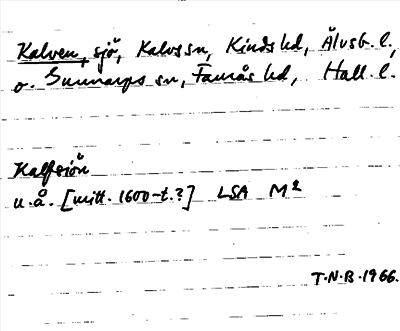 Kalven, sjö, Kalvs sn, Kinds hd, Älvsb. l.,
o. Gunnarps sn, Faurås hd, Hall. l.
Kalfsiön
u.å. [mitt. 1600-t.?] LSA M²
T.N.B. 1966.